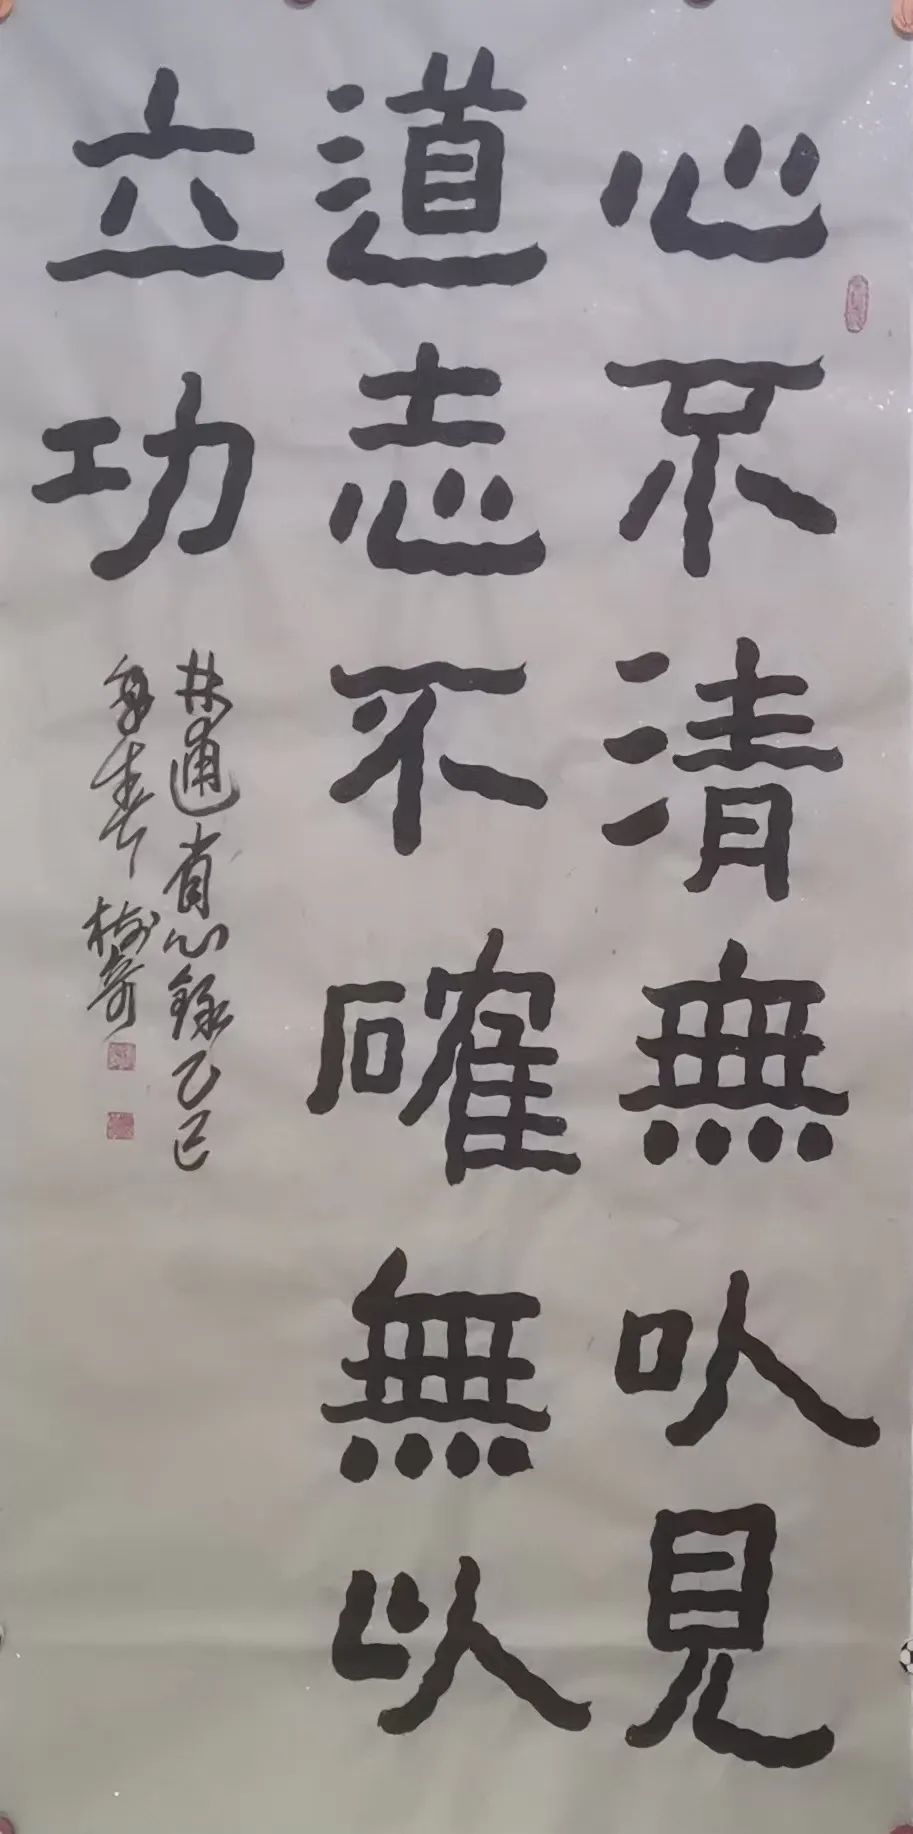 心不清無以見
道志不確無以
立功
林逋省心錄乙巳
年春樹奇